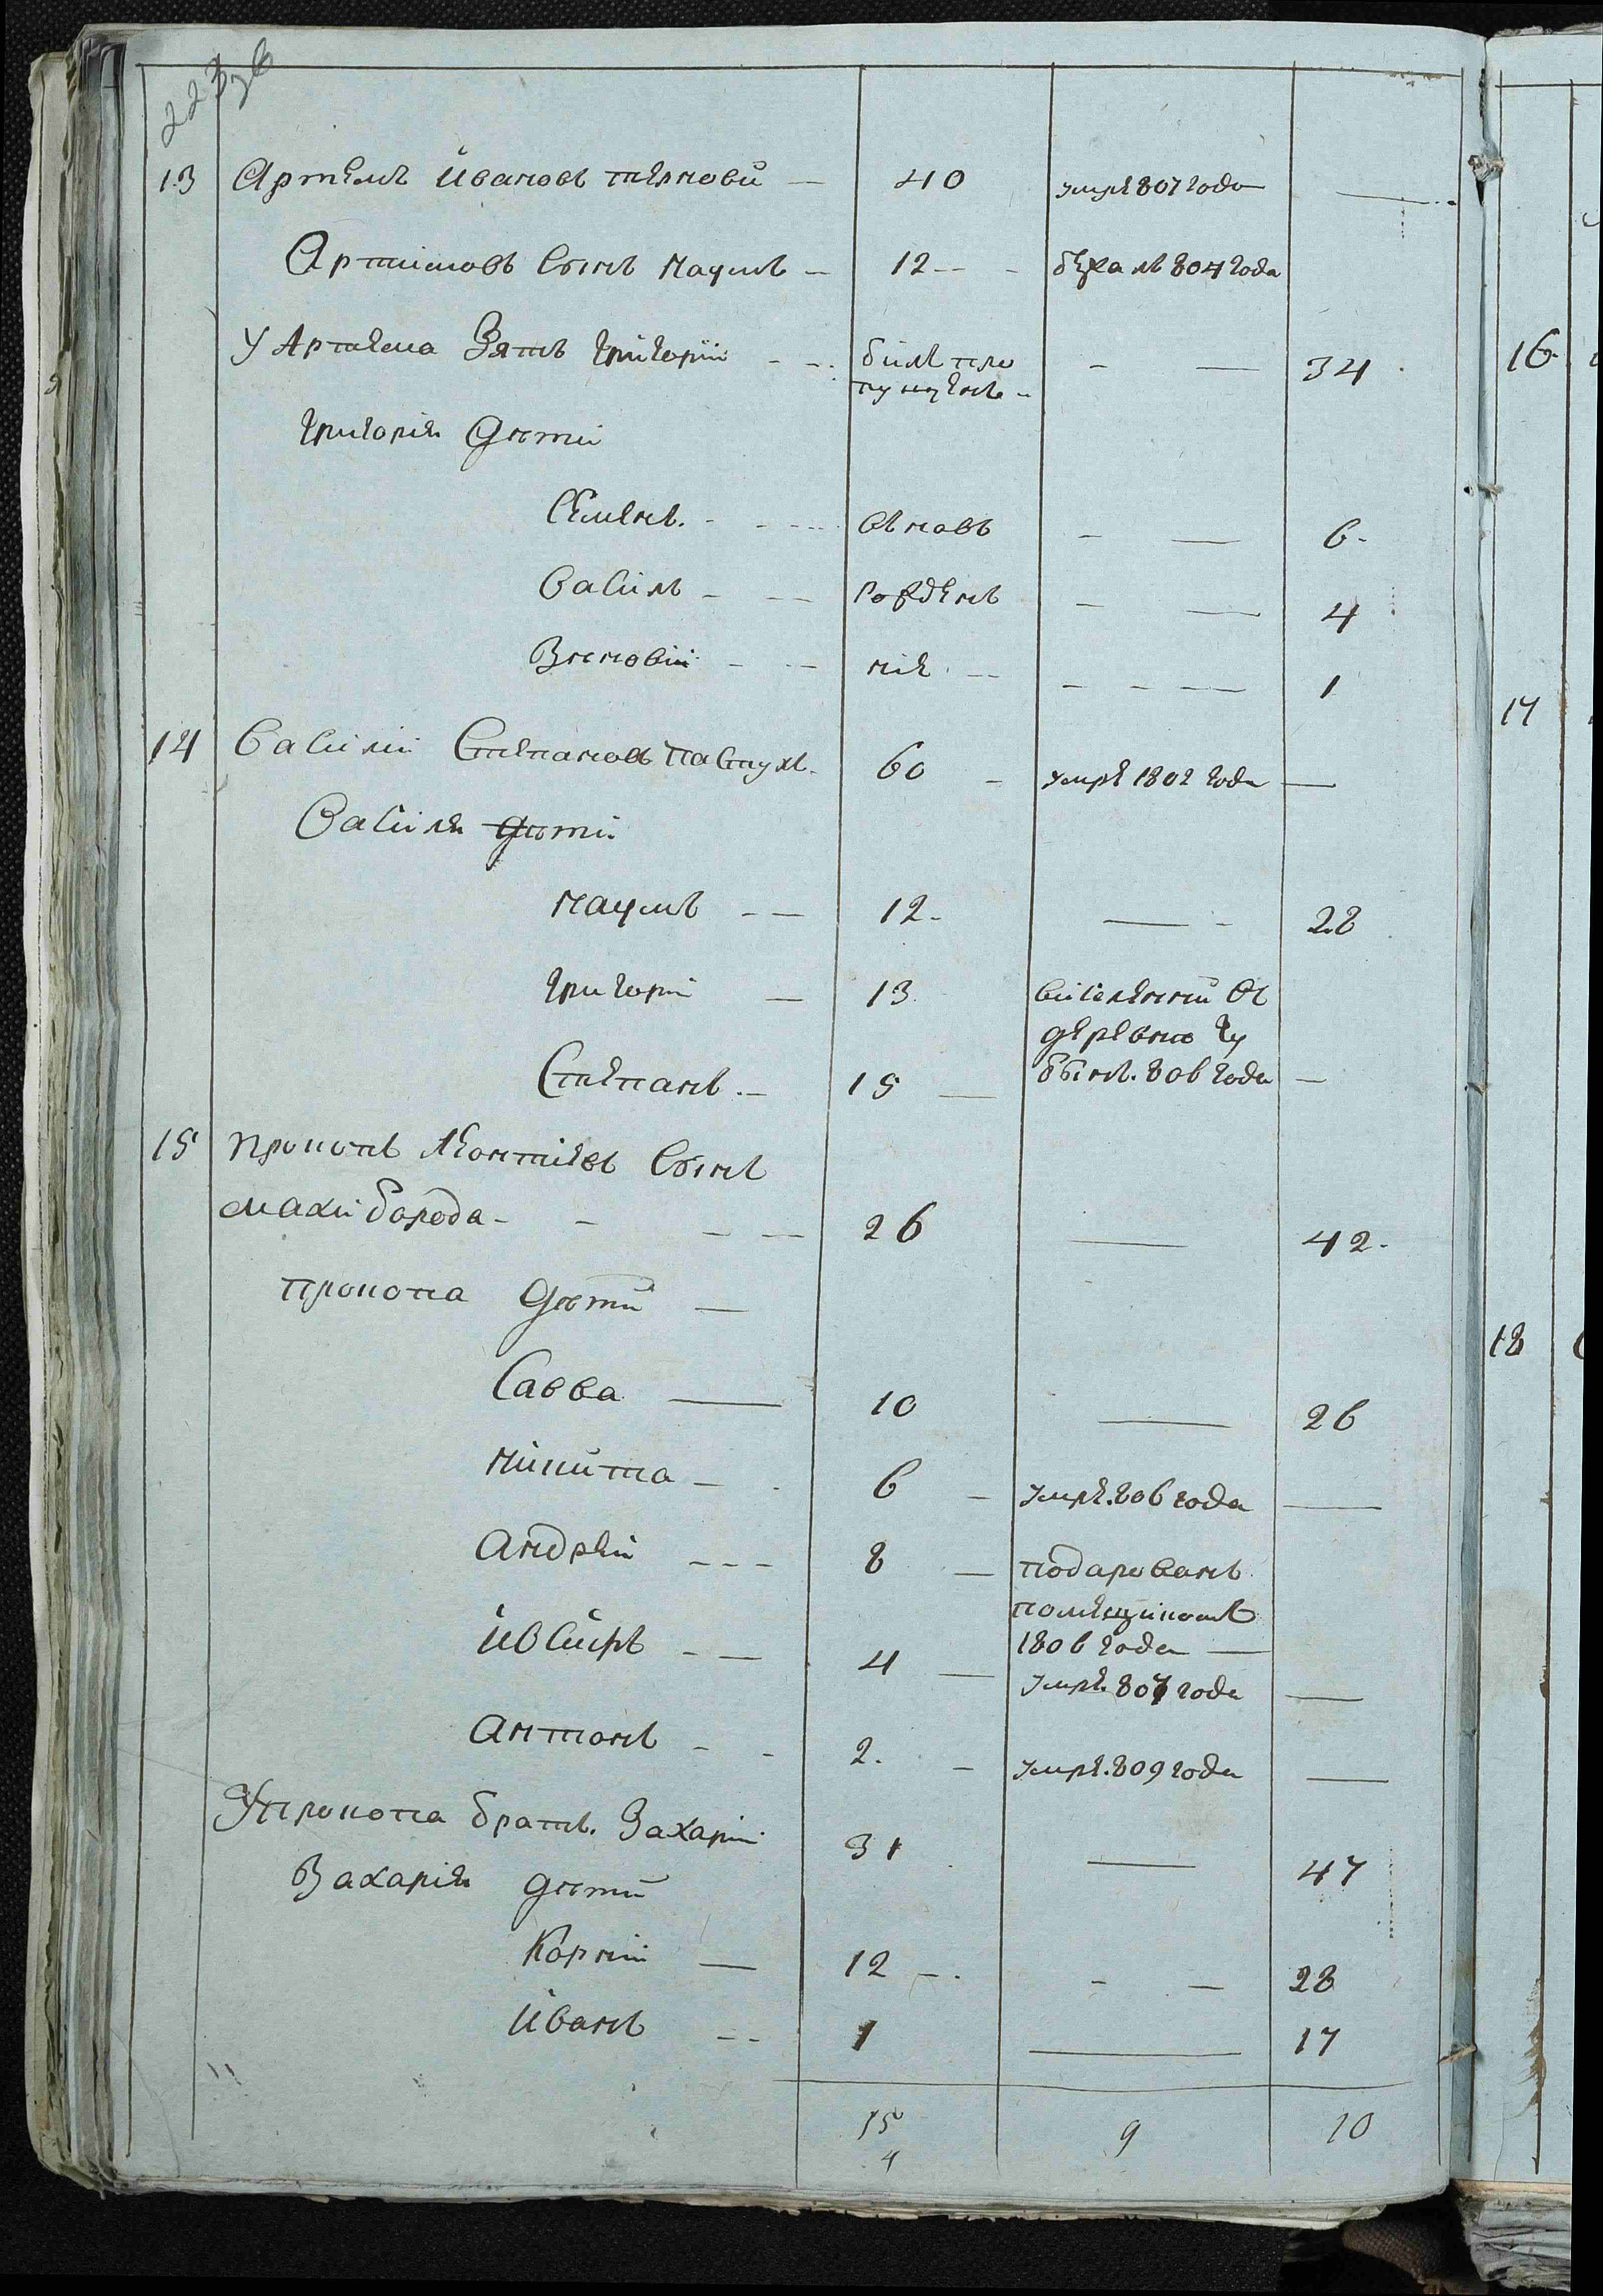 223 об
13 Артемъ Ивановъ терновй — 40 умре 807 года —
Артимовъ сынъ Наумъ — 12 — бежалъ 804 года
У Артема Зятъ Григорий — билъ про — 34
пущенъ —
Григория Дети
Семенъ — вновъ — 6
Василъ — рожденъ — 4
Зеновий — ние — 1
14 Василий Степановъ Пастухъ 60 — умре 1802 года —
Василя дети
Наумъ — 12 — 28
Григорий — 13 виселений въ
деревню Гу
Степанъ — 15 — бынъ 806 года —
15 Прокопъ Леонтиевъ Сынъ
Махиборода — 26 — 42
Прокопа Дети —
Савва — 10 — 26
Никита — 6 — умре 806 года —
Андрей — 8 — подарованъ
помещикомъ
1806 года —
Ивсиръ — 4 — умре 807 года —
Антонъ — 2 — умре 809 года —
У Прокопа братъ Захарий 31 — 47
Захария дети
Корний — 12 — 28
Иванъ — 1 — 17
15 9 10
4
16
17
18